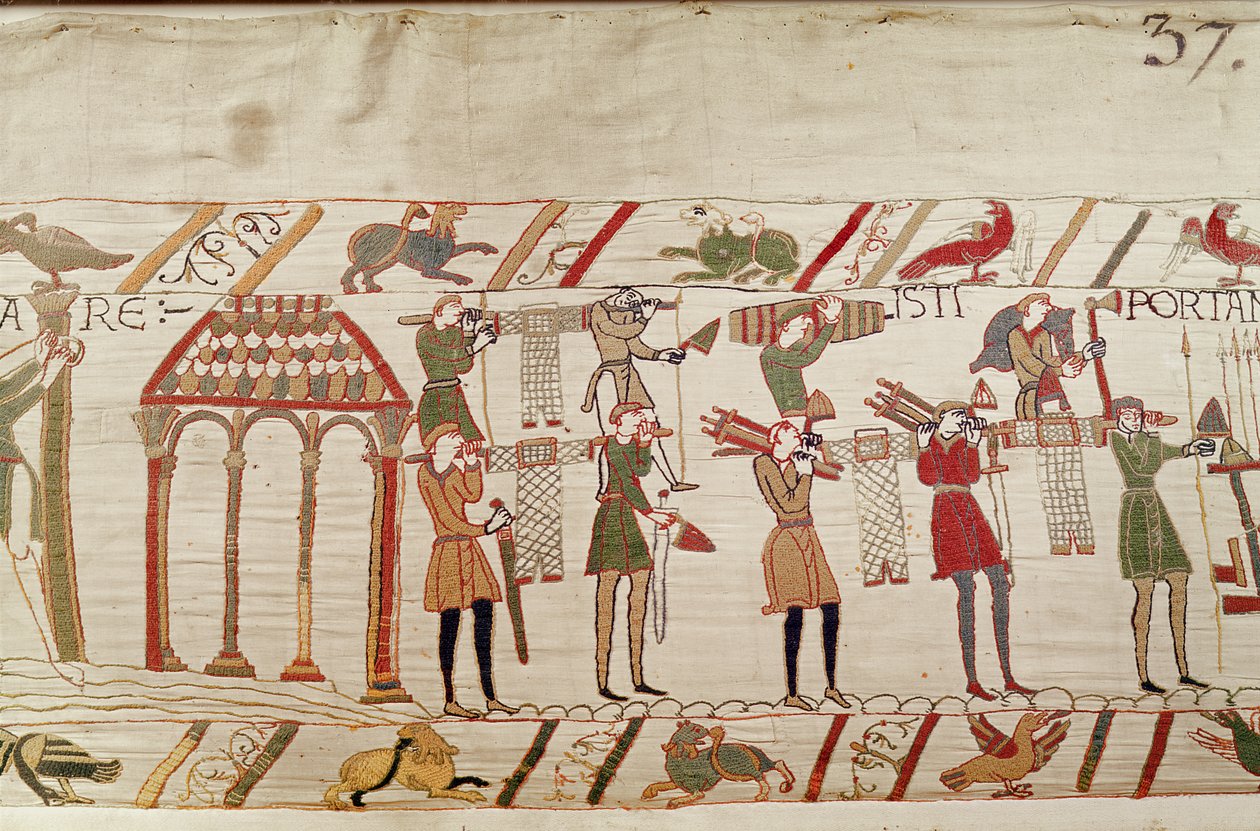 37.
A RE :- ISTI PORTAN